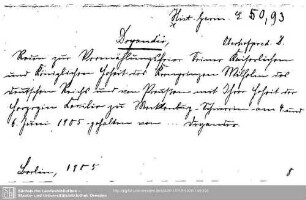 Hist. Germ. q 50,93
Dryander,
Reden zur Vermählungsfeier Seiner Kaiserlichen
und Königlichen Hoheit des Kronprinzen Wilhelm des
deutschen Reichs und von Preussen mit Ihrer Hoheit der
Herzogin Cecilie zu Mecklenburg-Schwerin am 4 und
6 Juni 1905 gehalten von ... Dryander
Berlin, 1905
8
Sächsische Landesbibliothek -
Staats- und Universitätsbibliothek Dresden